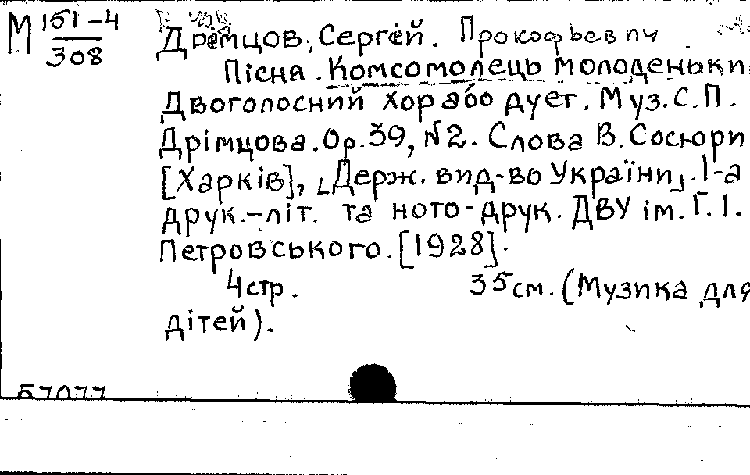 М 151-4
308
Дрімцов, Сергій. Прокофьевич.
Пісна. Комсомолець молоденьки
Двоголосний хор або дует. Муз. С. П.
Дрімцова. Ор. 39, №2. Слова В. Сосюри
[Харків], „Держ. вид-во України„. 1-а
друк.-літ. та ното-друк. ДВУ ім. Г. І.
Петровського. [1928].
4 стр. 35 см. (Музика для
дітей).
57077